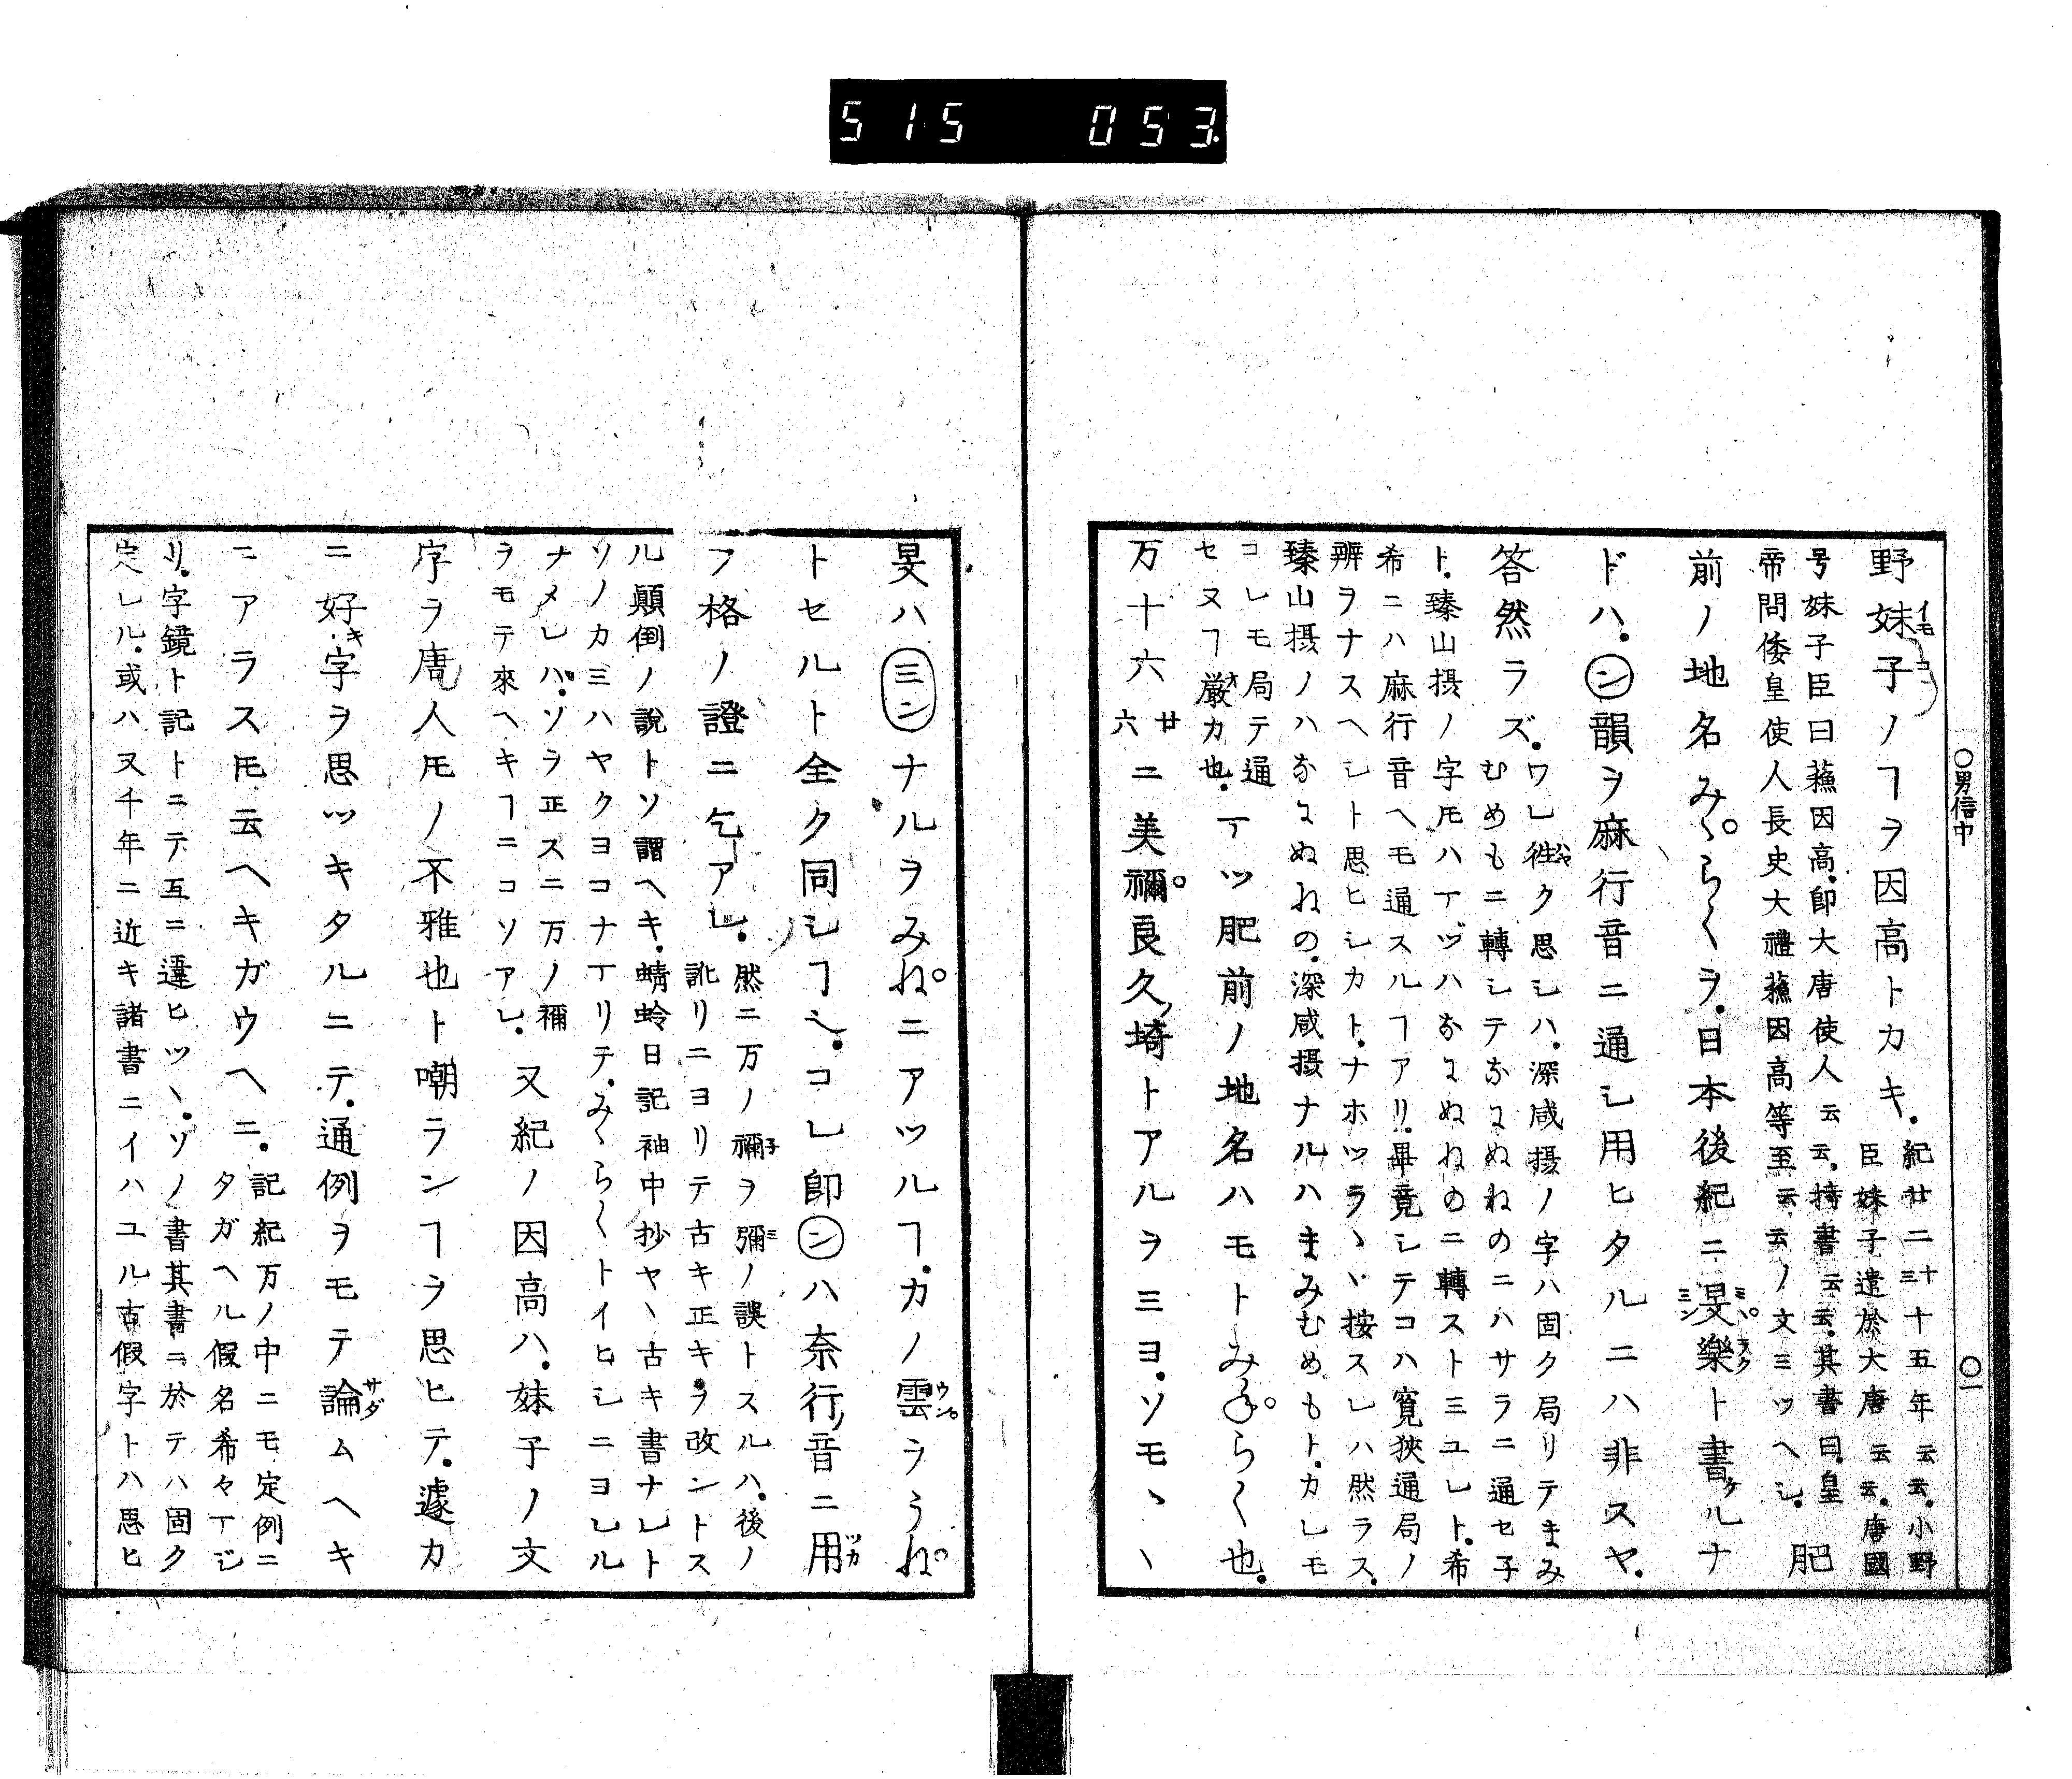 515 053
○男信中
○一
野妹子ノヿヲ因高トカキ.
紀廿二十三十五年云云.小野
臣妹子遣於大唐云云.唐國
号妹子臣曰蘓因高.即大唐使人云云.持書云云.其書曰.皇
帝問倭皇使人長史大禮蘓因高等至云云ノ文ミツヘシ.
肥
前ノ地名みゝらくヲ.日本後紀ニ旻樂ト書ケルナ
ドハ.㋛韻ヲ麻行音ニ通シ用ヒタルニハ非スヤ.
答然ラズ.
ワレ徃ク思シハ.深咸摂ノ字ハ固ク局リテまみ
むめもニ轉シテなにぬねのニハサラニ通セ子
ト.臻山摂ノ字𪜈ハアヅハなにぬねのニ轉ストミユレト.希
希ニハ麻行音ヘモ通スルヿアリ.畢竟シテコハ寛狹通局ノ
辨ヲナスヘシト思ヒシカト.ナホツラヽヽ按スレハ然ラス.
臻山摂ノハなにぬねの.深咸摂ナルハまみむめもト.カレモ
コレモ局テ通
セヌヿ嚴カ也.
アツ肥前ノ地名ハモトみねらく也.
万十六
廿
六
ニ美禰良久ノ埼トアルヲミヨ.ソモヽヽ
旻ハミンナルヲみねニアツルヿ.カノ雲ヲうね
トセルト全ク同シヿ也.コレ即ンハ奈行ノ音ニ用
フ格ノ證ニ乞アレ.
然ニ万ノ禰ヲ彌ノ誤トスルハ.後ノ
訛リニヨリテ古キ正キヲ改ントス
ル顛倒ノ説トソ謂ヘキ.蜻蛉日記袖中抄ヤヽ古キ書ナレト
ソノカミハヤクヨコナアリテ.みゝらくトイヒシニヨレル
ナメレハ.ソヲ正スニ万ノ禰
ヲモテ來ヘキヿニコソアレ.
又紀ノ因高ハ.妹子ノ文
字ヲ唐人𪜈ノ不雅也ト嘲ランヿヲ思ヒテ.遽カ
ニ好キ字ヲ思ツキタルニテ.通例ヲモテ論ムヘキ
ニアラス𪜈云ヘキガウヘニ.
記紀万ノ中ニモ定例ニ
タガヘル假名希々アレ
リ.字鏡ト記トニテ互ニ違ヒツヽ.ソノ書其書ニ於テハ固ク
定レル.或ハ又千年ニ近キ諸書ニイハユル古假字トハ思ヒ